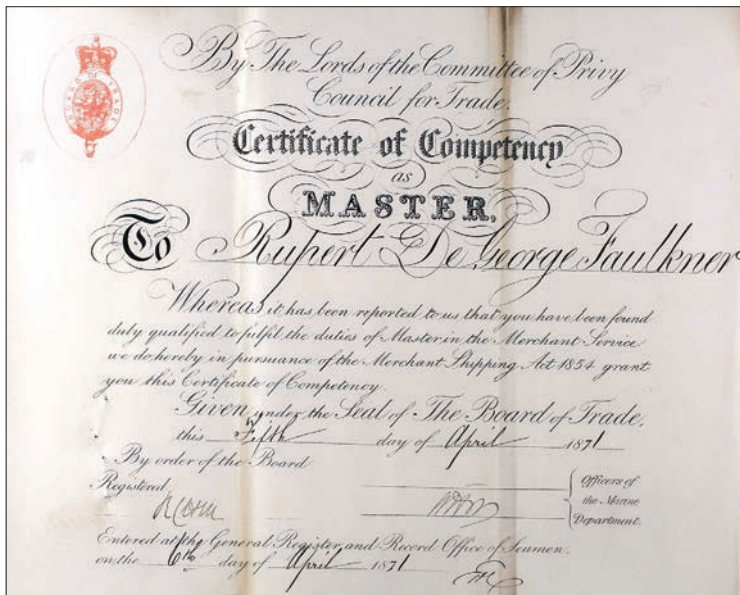 BOARD OF TRADE
By The Lords of the Committee of Privy
Council for Trade.
Certificate of Competency
as
MASTER,
To Rupert De George Faulkner
Whereas it has been reported to us that you have been found
duly qualified to fulfil the duties of Master in the Merchant Service
we do hereby in pursuance of the Merchant Shipping Act 1854 grant
you this Certificate of Competency.
Given under the Seal of The Board of Trade,
this Fifth day of April 1871
By order of the Board
Registered
Officers of
the Marine
Department.
Entered at the General Register and Record Office of Seamen,
on the 6th day of April 1871